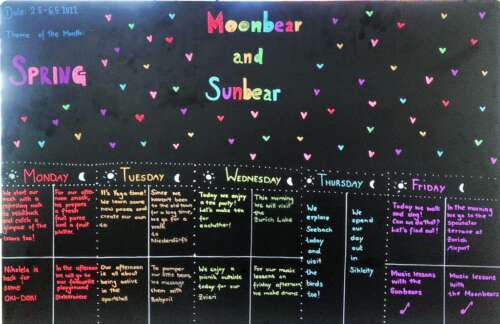 Date: 2.5-6.5.2022
Theme of the Month:
SPRING
Moonbear
and
Sunbear
MONDAY
TUESDAY
WEDNESDAY
THURSDAY
FRIDAY
We start our
week with a
refreshing walk
to
and catch a
glimpse of the
trams too!
For our after-
noon snack,
we prepare
a fresh
fruit puree
and a fruit
platter.
It's Yoga time!
We learn some
new poses and
create our own
Since we
haven't been
to the old town
for a long time,
we go for a
walk
to
Niederdorf!
Today we enjoy
a tea party!
Let's make tea
for
eachother!
This morning
we will visit
the
Zürich Lake
We
explore
Seebach
today
and
visit
the
birds
too!
We
spend
our
day
out
in
Sihlcity
Today we
walk and
sing!
Can we do that?
Let's find out!
In the morning
we go to the
spectator
terrace at
Zurich
airport
Nikolela is
back for
some
OKI-DOKI
In the afternoon
we will go to
our favourite
playground
Our afternoon
is all about
being active
in the
sportshall
To pamper
our little toes,
we massage
them with
Babyoil
We enjoy a
picnic outside
today for our
Zvieri
For our music
lessons
friday afternoon
we make drums
Music lessons
with the
Sunbears
Music
lessons
with the
Moonbears